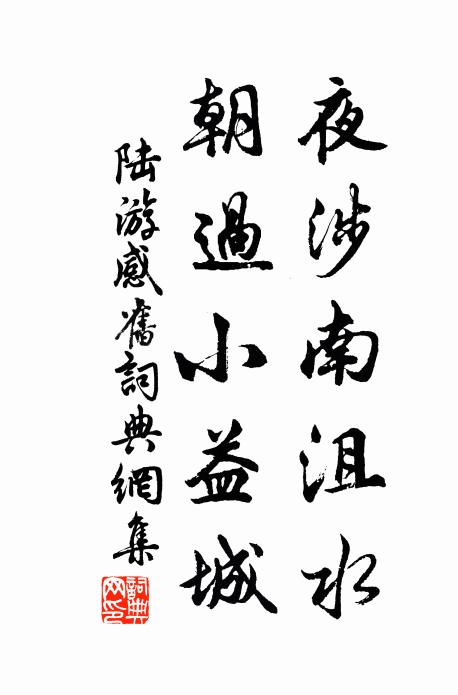 夜涉南沮水
朝過小益城
陸游感舊詞典網集
詞典網印